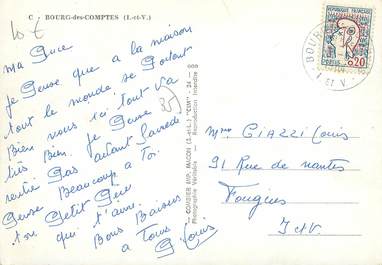 10 €
C - BOURG-des-COMPTES (I.-et-V.)
ma Puce
Je Pense que a la maison
tout le monde se Portent
Bien nous ici tout va
très Bien. Je Pense
rentré Pas avant Samedi
Pense Beaucoup a Toi
ton Petit Père
qui t'aime.
Bons Baisers
a Tous
Louis
COMBIER IMP. MACON (S.-et-L.) "CIM"
Photographie Véritable - Reproduction Interdite
REPUBLIQUE FRANÇAISE
0,20
POSTES
BOURG
I. ET V.
Mme GIAZZI Louis
91 Rue de nantes
Fougères
I et V